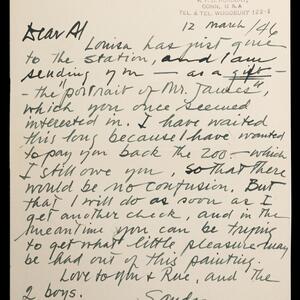 CONN. U.S.A
TEL. & TEL. WOODBURY 122-2
12 March/46
Dear Al
Louisa has just gone
to the station, and I am
sending you – as a gift –
– the portrait of "Mr. James",
which you once seemed
interested in. I have waited
this long because I have wanted
to pay you back the 200.– which
I still owe you, so that there
would be no confusion. But
that I will do as soon as I
get another check, and in the
meantime you can be trying
to get what little pleasure may
be had out of this painting.
Love to you & Rue, and the
2 boys.